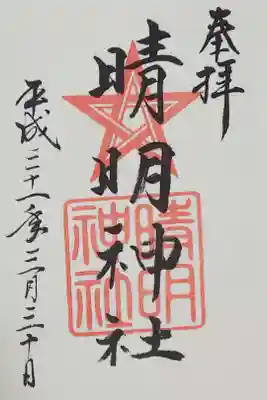 奉拝
晴明神社
晴明神社
平成二十一年三月三十日